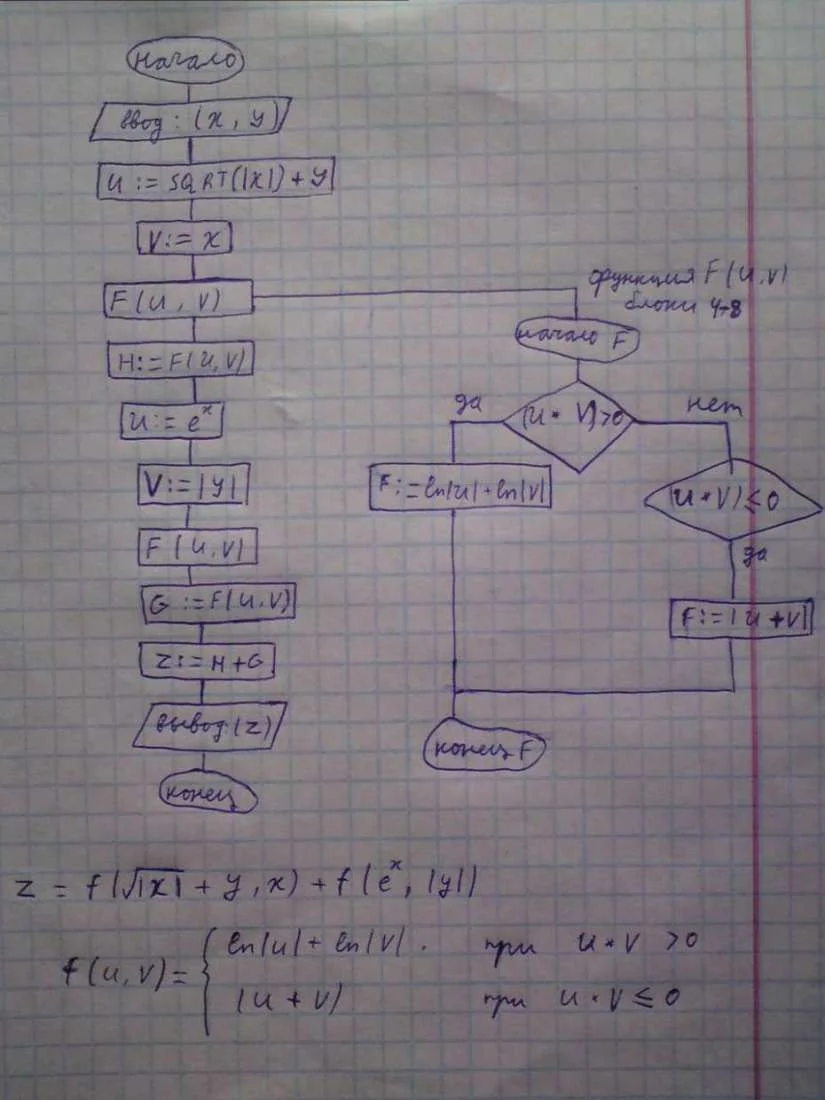 начало
ввод: (x, y)
U := SQRT(|X|) + y
V := x
F(U, V)
H := F(U, V)
U := e^x
V := |y|
F(U, V)
G := F(U, V)
Z := H + G
вывод(z)
конец
функция F(U, V)
блоки 4-8
начало F
да
(U * V) > 0
нет
F := ln|U| + ln|V|
(U * V) ≤ 0
да
F := |U + V|
конец F
z = f(√|x| + y, x) + f(e^x, |y|)
f(u, v) = { ln|u| + ln|v|. при u * v > 0
|u + v| при u * v ≤ 0